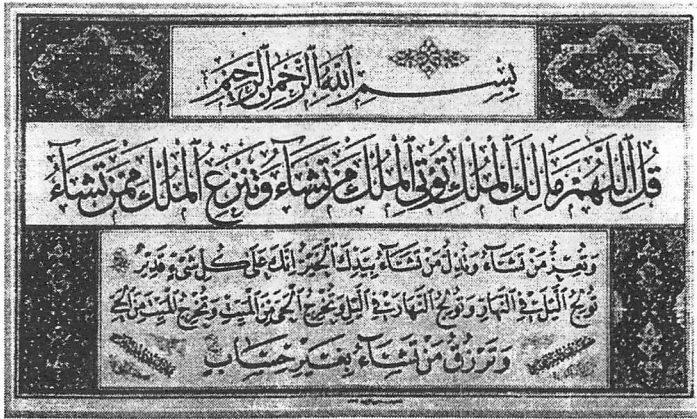 بِسْمِ اللَّهِ الرَّحْمَنِ الرَّحِيمِ
قُلِ اللَّهُمَّ مَالِكَ الْمُلْكِ تُؤْتِي الْمُلْكَ مَنْ تَشَاءُ وَتَنْزِعُ الْمُلْكَ مِمَّنْ تَشَاءُ
وَتُعِزُّ مَنْ تَشَاءُ وَتُذِلُّ مَنْ تَشَاءُ بِيَدِكَ الْخَيْرُ إِنَّكَ عَلَى كُلِّ شَيْءٍ قَدِيرٌ
تُولِجُ الَّيْلَ فِي النَّهَارِ وَتُولِجُ النَّهَارَ فِي الَّيْلِ وَتُخْرِجُ الْحَيَّ مِنَ الْمَيِّتِ وَتُخْرِجُ الْمَيِّتَ مِنَ الْحَيِّ
وَتَرْزُقُ مَنْ تَشَاءُ بِغَيْرِ حِسَابٍ